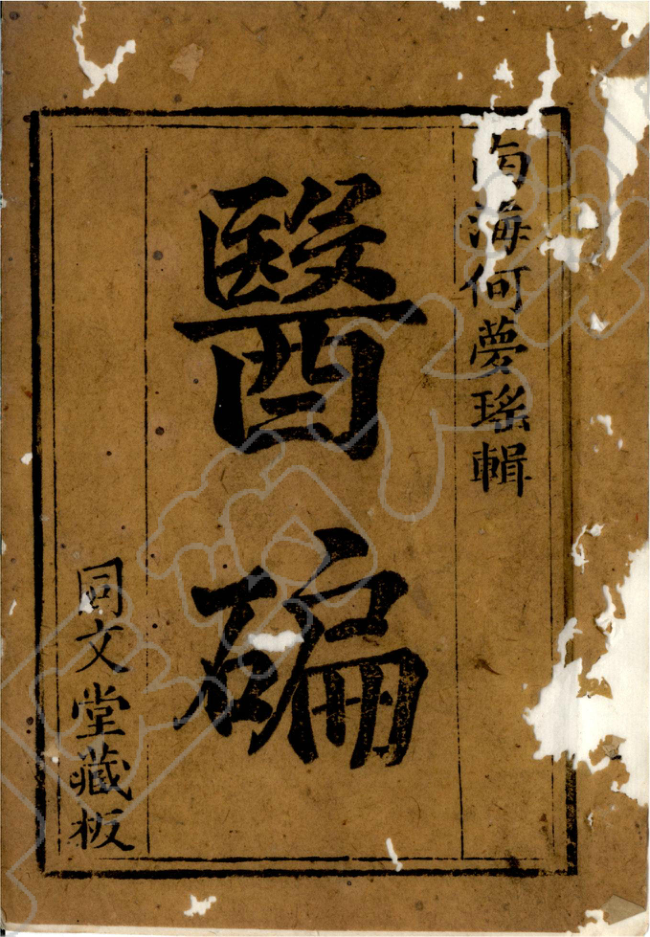 南海何夢瑤輯
醫碥
同文堂藏板